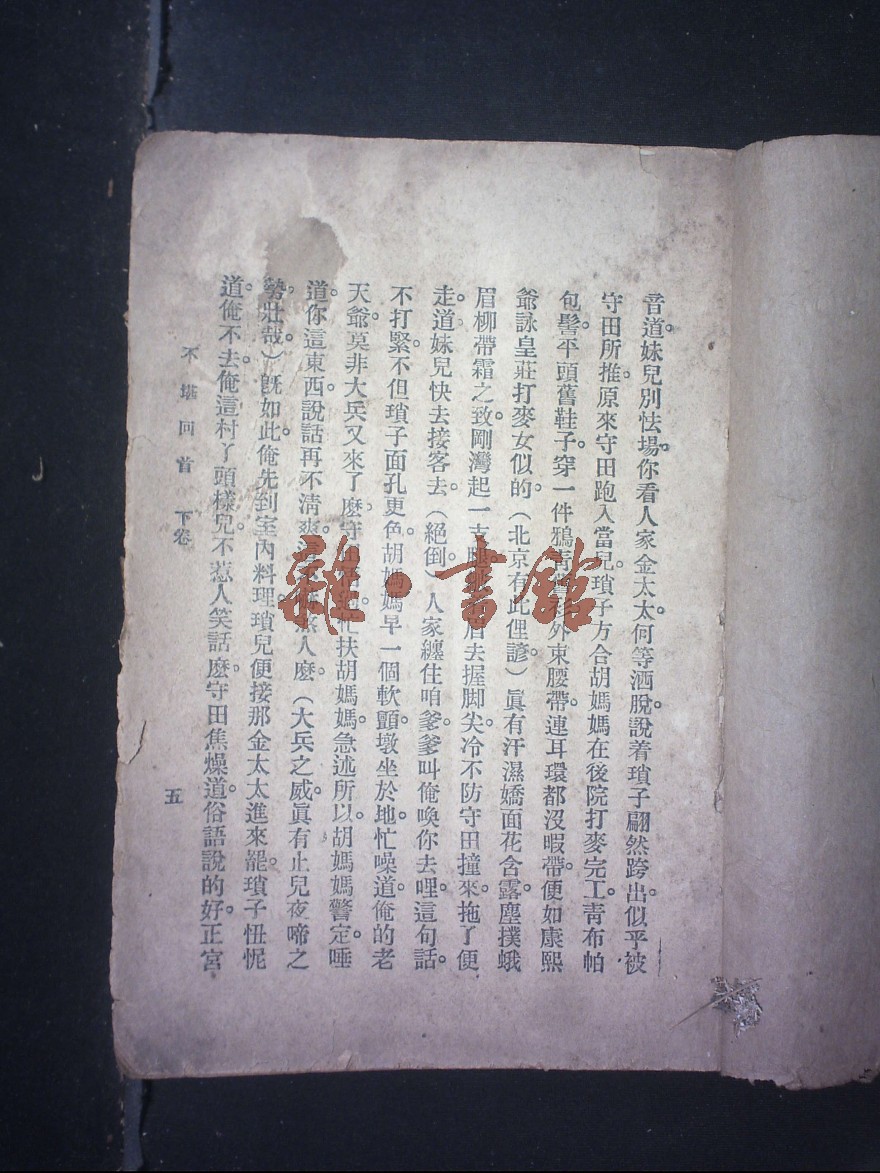 音道。妹兒別怯場。你看人家金太太。何等洒脫。說着瑣子翩然跨出。似乎被
守田所推。原來守田跑入當兒。瑣子方合胡媽媽在後院打麥完工。青布帕
包髻。平頭舊鞋子。穿一件鴉青 外束腰帶。連耳環都沒暇帶。便如康熙
爺詠皇莊打麥女似的。（北京有此俚諺）眞有汗濕嬌面花含露。塵撲蛾
眉柳帶霜之致。剛灣起一支腿 眉去握脚尖。冷不防守田撞來。拖了便
走。道妹兒快去接客去。（絕倒）人家纏住咱爹爹。叫俺喚你去哩。這句話。
不打緊。不但瑣子面孔更色。胡媽媽早一個軟顫。墩坐於地。忙噪道。俺的老
天爺。莫非大兵又來了麼。守田 忙扶胡媽媽。急述所以。胡媽媽驚定。唾
道。你這東西。說話再不清爽。 煞人麼。（大兵之威。眞有止兒夜啼之
勢。壯哉。）旣如此。俺先到室內料理。瑣兒便接那金太太進來罷。瑣子忸怩
道。俺不去。俺這村丫頭樣兒。不惹人笑話麼。守田焦燥道。俗語說的好。正宮
不堪回首 下卷
五
雜·書館